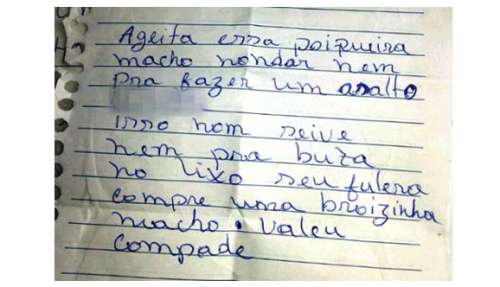 Ageita essa poipueira
macho nondar nem
pra fazer um asalto
Isso nom seive
nem pra buta
no lixo seu fulera
compre uma broizinha
macho. valeu
compade